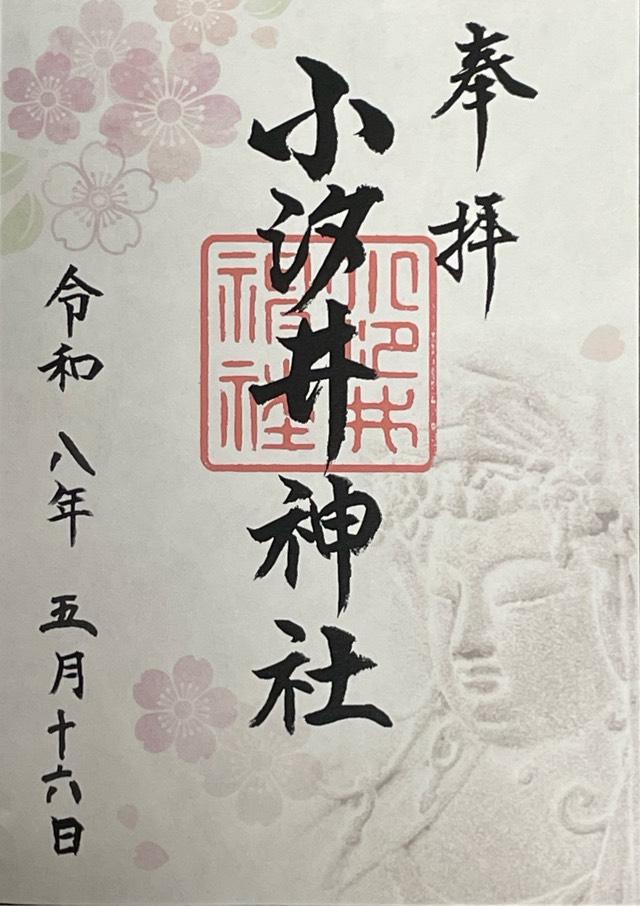 奉拝
小汐井神社
小汐井神社
令和八年五月十六日